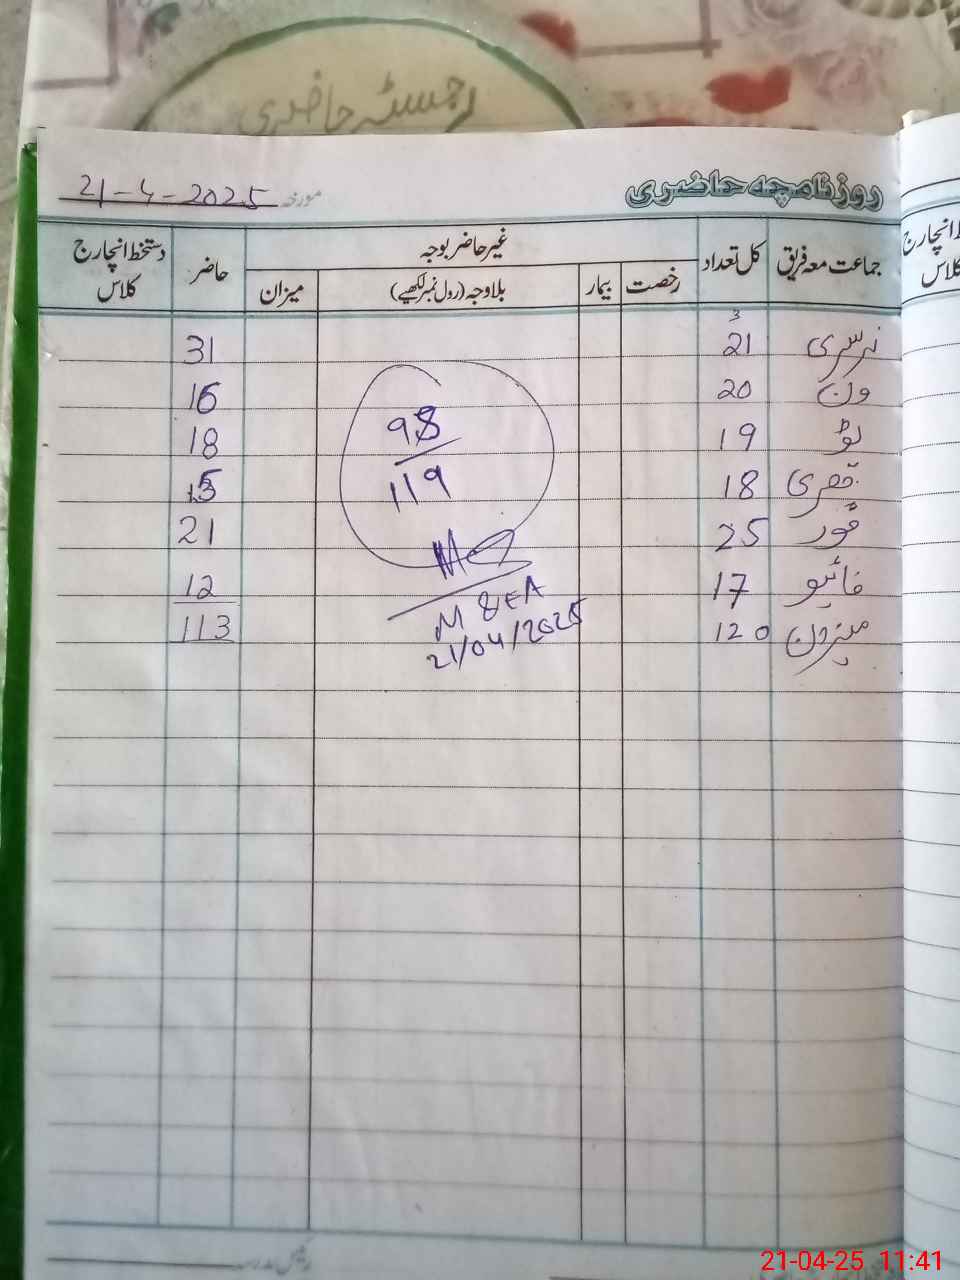 رجسٹر حاضری
روزنامچہ حاضری مورخہ 21-4-2025
جماعت معہ فریق کل تعداد غیر حاضر بوجہ حاضر دستخط انچارج کلاس
رخصت بیمار بلاوجہ (رول نمبر لکھیے) میزان
نرسری 21 31
3
ون 20 16
ٹو 19 18
تھری 18 15
فور 25 21
فائیو 17 12
میزون 120 113
98
119
M&EA
21/04/2025
انچارج
کلاس
21-04-25 11:41